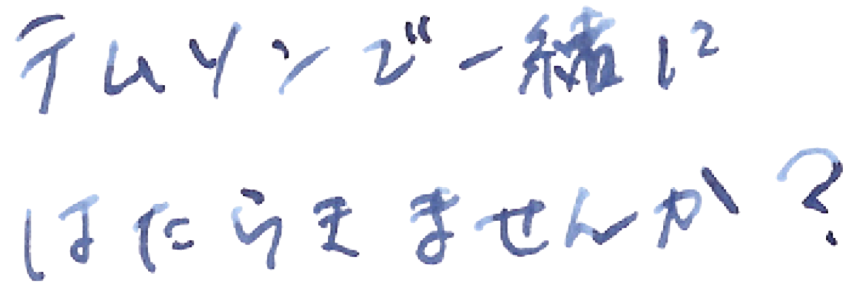 テムリンで一緒に
はたらきませんか?